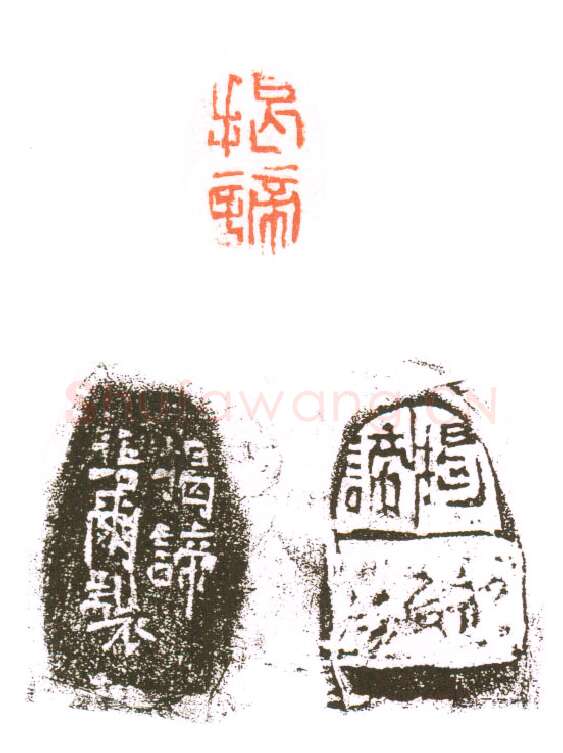 揭諦
Shufawang.CN
揭諦
爾製
揭諦